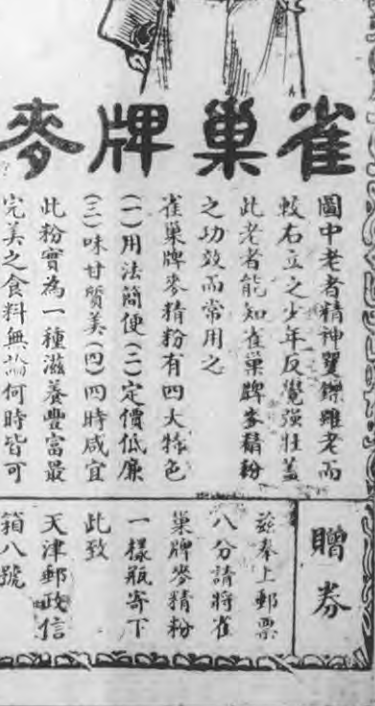 雀巢牌麥
圖中老者精神矍鑠雖老而
較右立之少年反覺強壯蓋
此老者能知雀巢牌麥精粉
之功效而常用之
雀巢牌麥精粉有四大特色
(一)用法簡便(二)定價低廉
(三)味甘質美(四)四時咸宜
此粉實為一種滋養豐富最
完美之食料無論何時皆可
贈券
茲奉上郵票
八分請將雀
巢牌麥精粉
一樣瓶寄下
此致
天津郵政信
箱八號